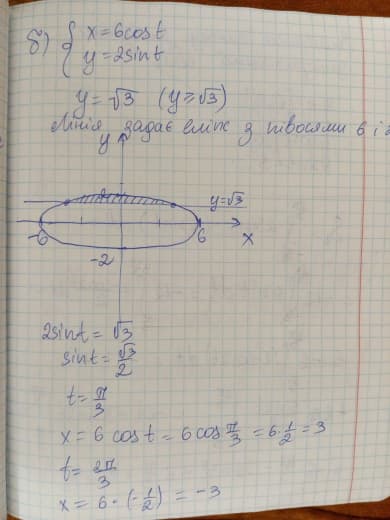 б) { x=6cost
y=2sint
y=√3 (y≥√3)
Лінія задає еліпс з півосями 6 і 2
y
y=√3
-6 6 x
-2
2sint=√3
sint=√3/2
t=π/3
x=6 cos t = 6 cos π/3 = 6·1/2 = 3
t=2π/3
x=6·(-1/2) = -3